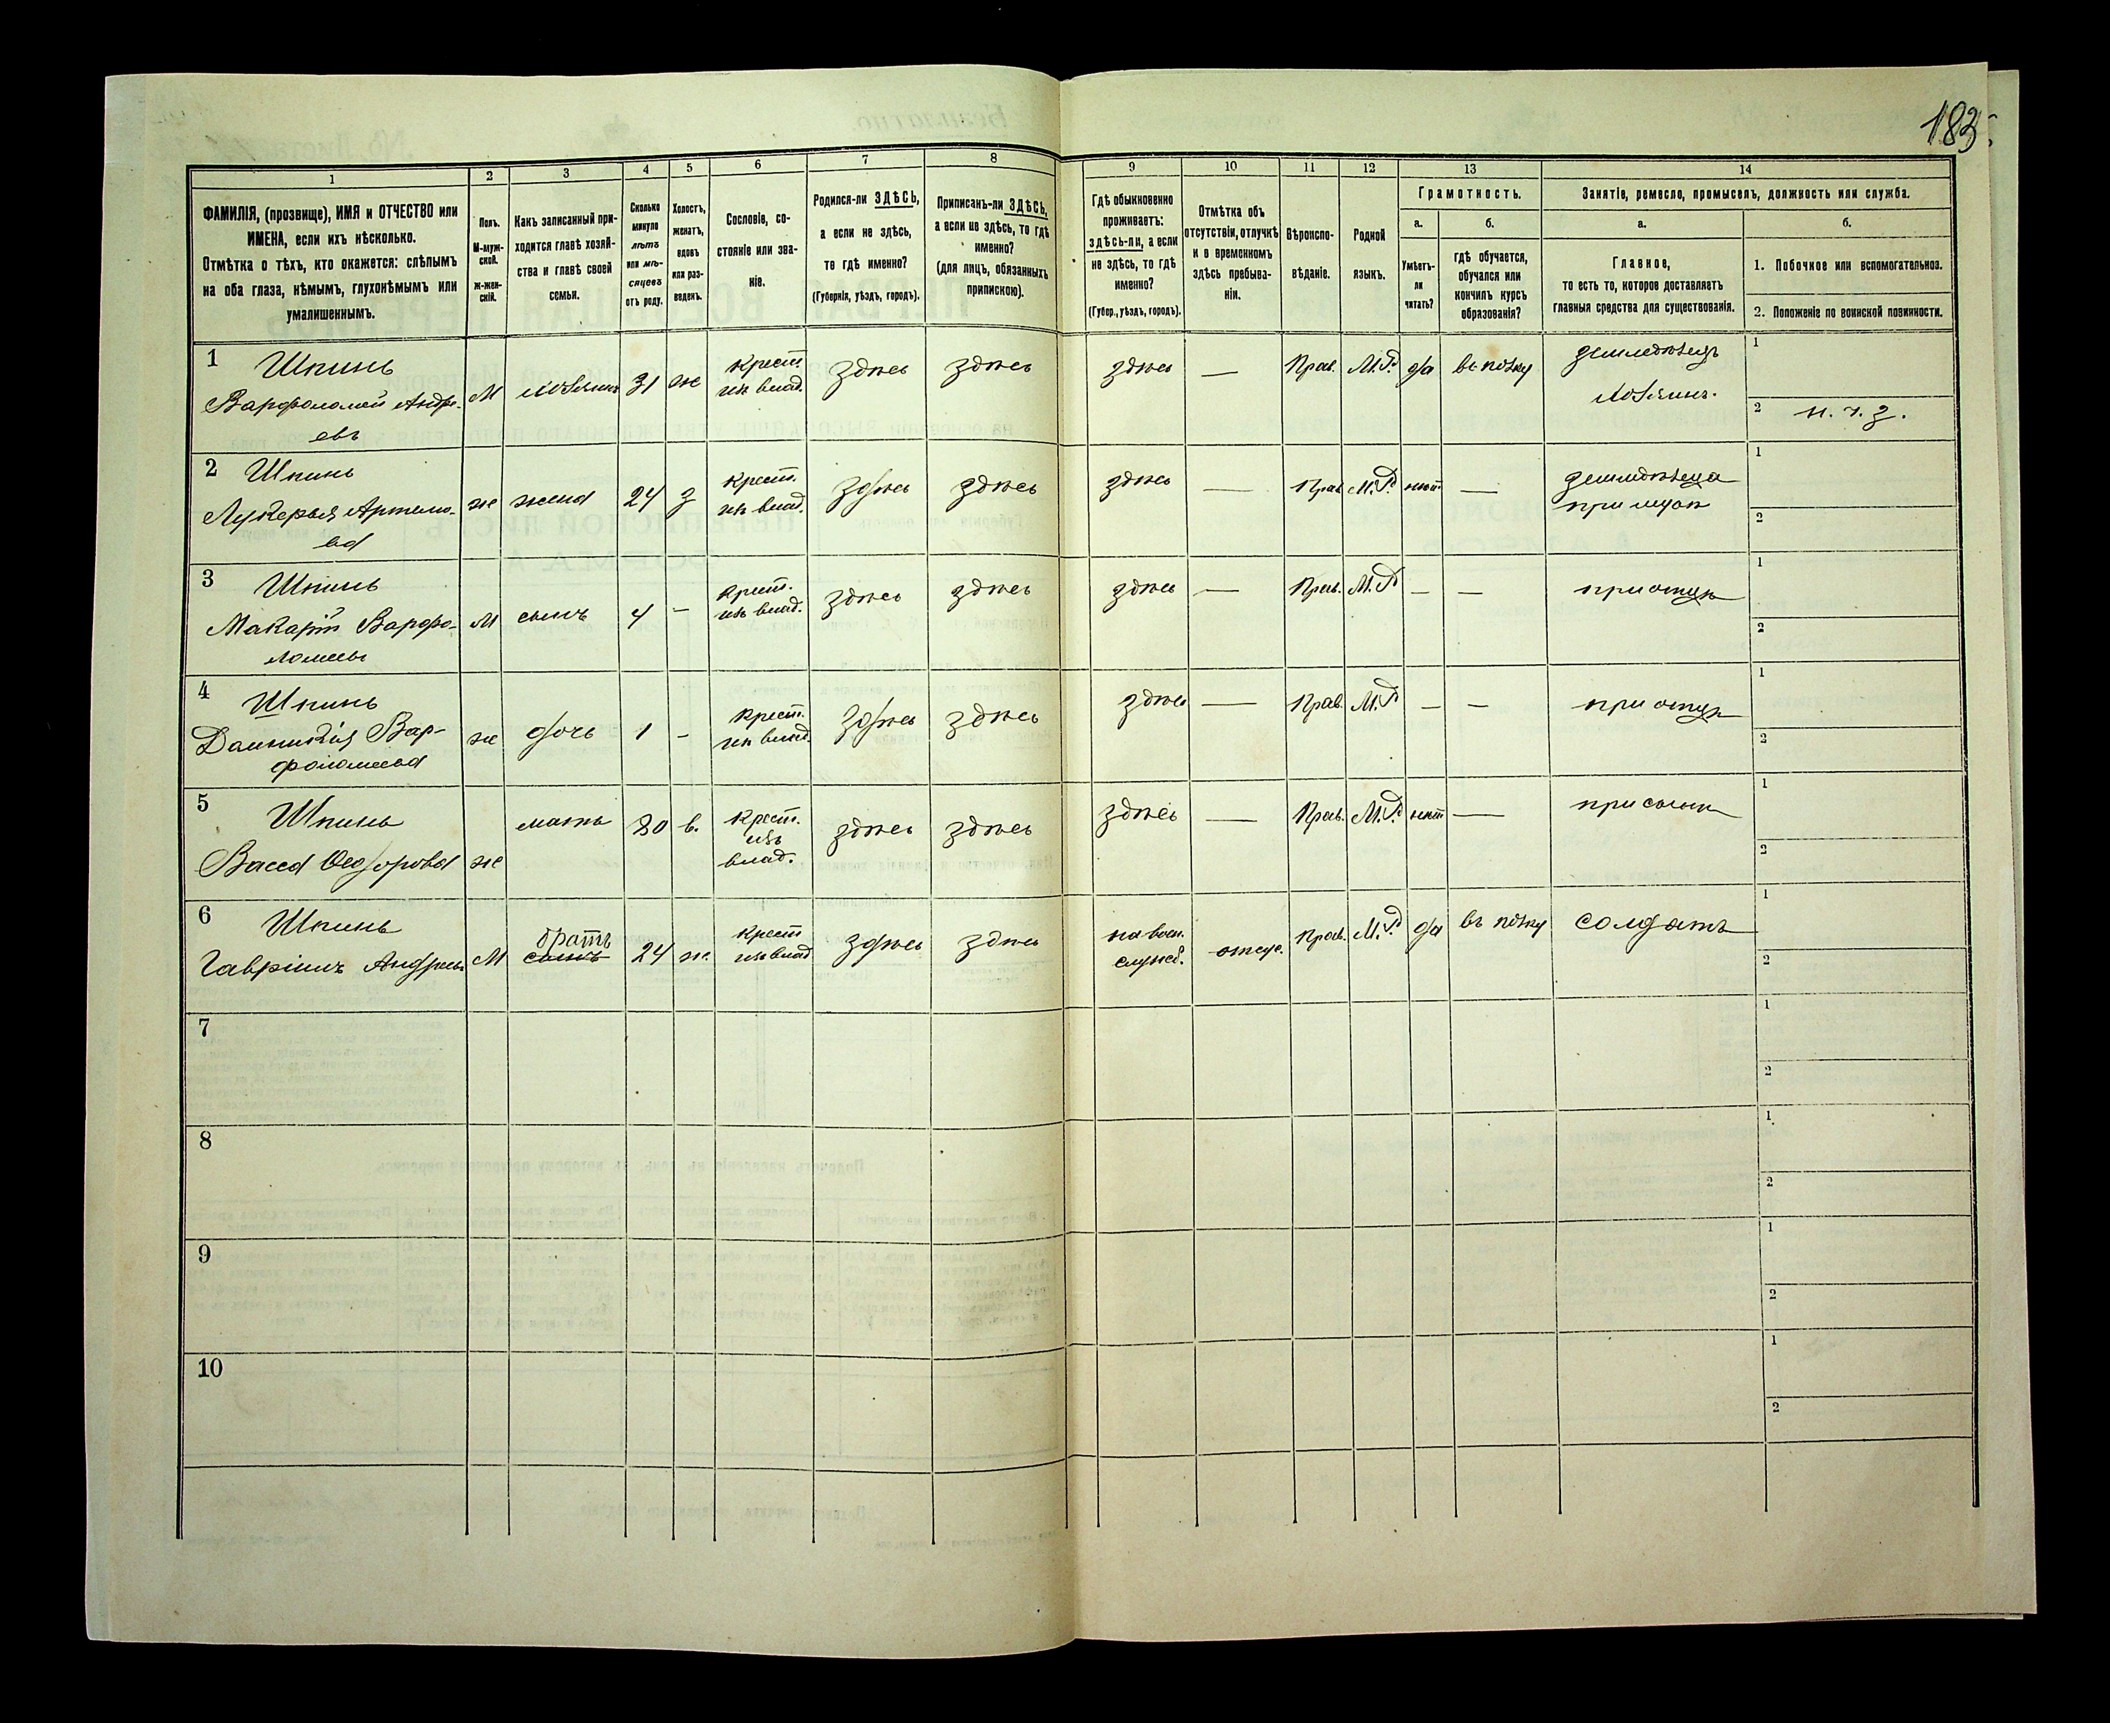 183
1
2
3
4
5
6
7
8
9
10
11
12
13
14
ФАМИЛІЯ, (прозвище), ИМЯ и ОТЧЕСТВО или
ИМЕНА, если ихъ нѣсколько.
Отмѣтка о тѣхъ, кто окажется: слѣпымъ
на оба глаза, нѣмымъ, глухонѣмымъ или
умалишеннымъ.
Полъ.
М-муж-
ской.
ж-жен-
скій.
Какъ записанный при-
ходится главѣ хозяй-
ства и главѣ своей
семьи.
Сколько
минуло
лѣтъ
или мѣ-
сяцевъ
отъ роду.
Холостъ,
женатъ,
вдовъ
или раз-
веденъ.
Сословіе, со-
стояніе или зва-
ніе.
Родился-ли ЗДѢСЬ,
а если не здѣсь,
то гдѣ именно?
(Губернія, уѣздъ, городъ).
Приписанъ-ли ЗДѢСЬ,
а если не здѣсь, то гдѣ
именно?
(для лицъ, обязанныхъ
припискою).
Гдѣ обыкновенно
проживаетъ:
здѣсь-ли, а если
не здѣсь, то гдѣ
именно?
(Губер., уѣздъ, городъ).
Отмѣтка объ
отсутствіи, отлучкѣ
и о временномъ
здѣсь пребыва-
ніи.
Вѣроиспо-
вѣданіе.
Родной
языкъ.
Грамотность.
а.
Умѣетъ-
ли
читать?
б.
гдѣ обучается,
обучался или
кончилъ курсъ
образованія?
Занятіе, ремесло, промыселъ, должность или служба.
а.
Главное,
то есть то, которое доставляетъ
главныя средства для существованія.
б.
1. Побочное или вспомогательное.
2. Положеніе по воинской повинности.
1 Шпинь
Варфоломей Андре-
евъ
М
хозяинъ
31
ж
крест.
изъ влад.
здѣсь
здѣсь
здѣсь
—
Прав.
М.Р.
да
въ полку
земледѣлецъ
хозяинъ.
1
2 н. ч. з.
2 Шпинь
Лукерья Артемо-
ва
ж
жена
24
з
крест.
изъ влад.
здѣсь
здѣсь
здѣсь
—
Прав
М.Р.
нѣт
—
земледѣлица
при мужѣ
1
2
3 Шпинь
Макарій Варфо-
ломеевъ
М
сынъ
4
-
крест.
изъ влад.
здѣсь
здѣсь
здѣсь
—
Прав.
М.Р
—
—
при отцѣ
1
2
4 Шпинь
Домникія Вар-
фоломеева
ж
дочь
1
-
крест.
изъ влад.
здѣсь
здѣсь
здѣсь
—
Прав.
М.Р
—
—
при отцѣ
1
2
5 Шпинь
Васса Ѳеодорова
ж
мать
80
в.
крест.
изъ
влад.
здѣсь
здѣсь
здѣсь
—
Прав.
М.Р.
нѣт
—
при сынѣ
1
2
6 Шпинь
Гавріилъ Андреевъ
М
братъ
сынъ
24
ж.
крест
изъ влад
здѣсь
здѣсь
на воен.
служб.
отсут.
Прав.
М.Р
да
въ полку
солдатъ
1
2
7
1
2
8
1
2
9
1
2
10
1
2